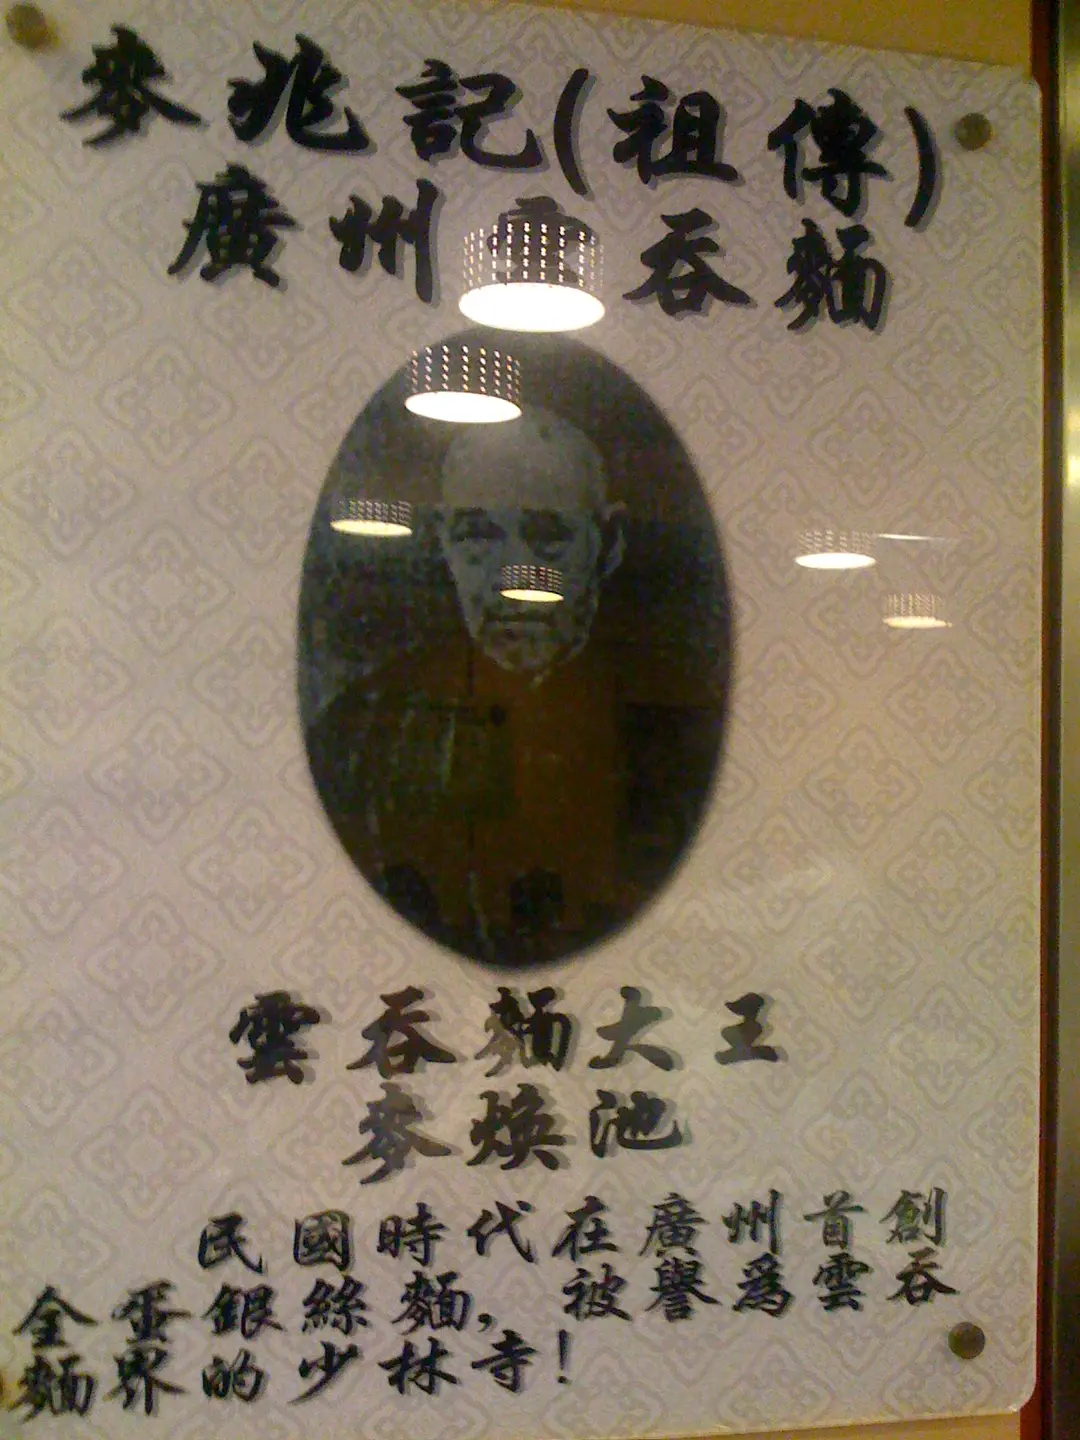 麥兆記(祖傳)
廣州雲吞麵
雲吞麵大王
麥煥池
民國時代在廣州首創
全蛋銀絲麵,被譽為雲吞
麵界的少林寺!